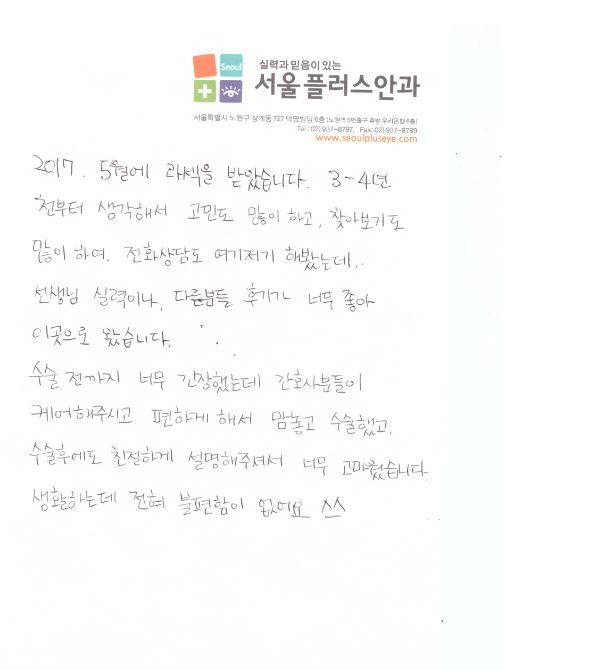 Seoul
실력과 믿음이 있는
서울플러스안과
서울특별시 노원구 상계동 727 덕영빌딩 6층 (노원역 5번출구 후방 우리은행 6층)
Tel : 02) 937-8787,   Fax: 02) 937-8789
www.seoulpluseye.com
2017. 5월에 라섹을 받았습니다. 3-4년
전부터 생각해서 고민도 많이 하고, 찾아보기도
많이 하여. 전화상담도 여기저기 해봤는데,.
선생님 실력이나, 다른분들 후기가 너무 좋아
이곳으로 왔습니다.
수술 전까지 너무 긴장했는데 간호사분들이
케어해주시고 편하게 해서 맘놓고 수술했고,
수술후에도 친절하게 설명해주셔서 너무 고마웠습니다.
생활하는데 전혀 불편함이 없어요 ^^